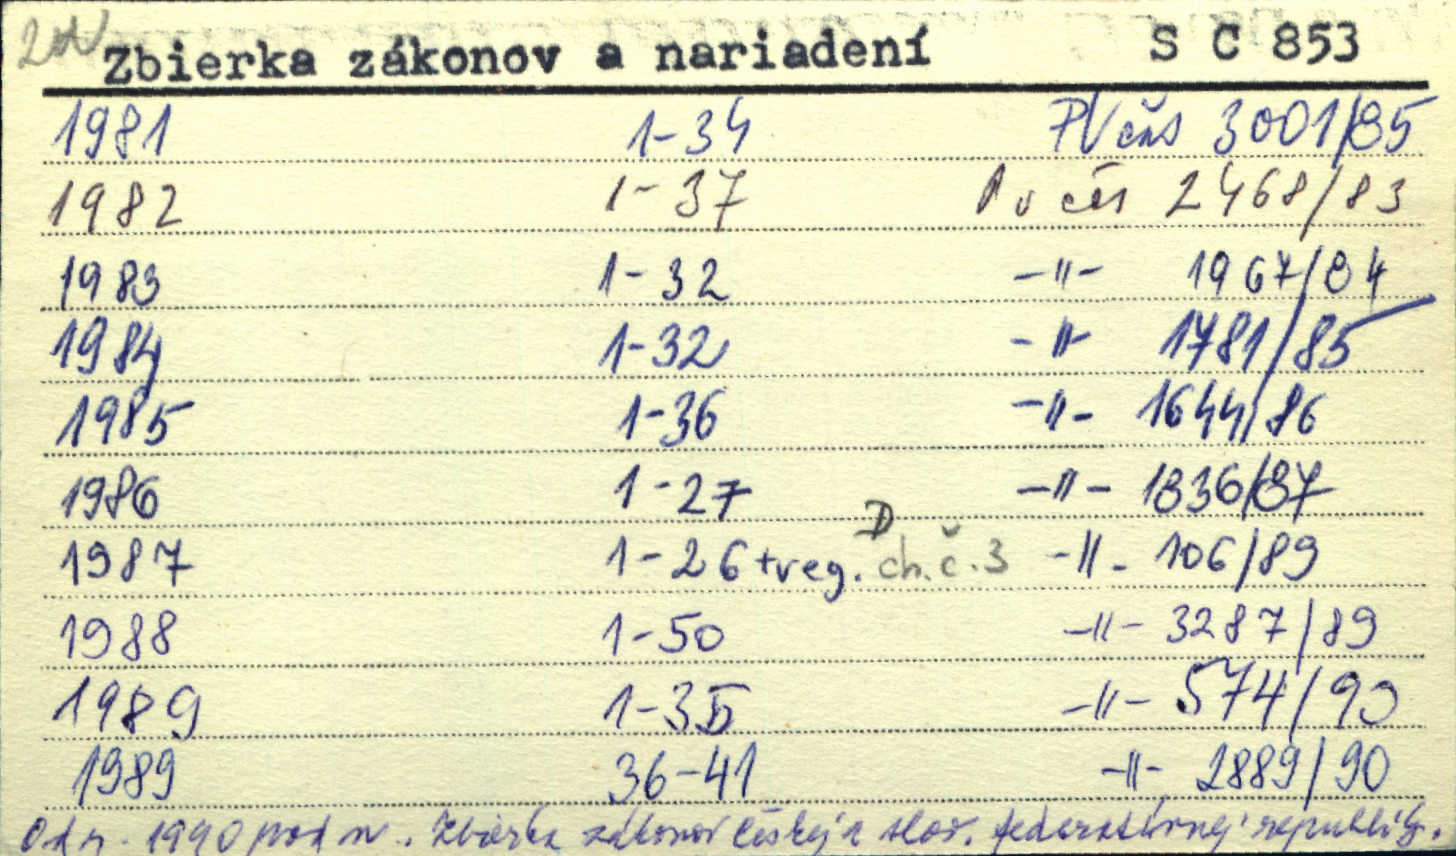 Zbierka zákonov a nariadení S C 853
1981 1-34 PV čas 3001/85
1982 1-37 Pv čas 2468/83
1983 1-32 -"- 1967/84
1984 1-32 -"- 1781/85
1985 1-36 -"- 1644/86
1986 1-27 -"- 1836/87
D
1987 1-26+reg. ch.č.3 -"- 106/89
1988 1-50 -"- 3287/89
1989 1-35 -"- 574/90
1989 36-41 -"- 2889/90
Od r. 1990 pod n. Zbierka zákonov Českej a slov. federatívnej republiky.